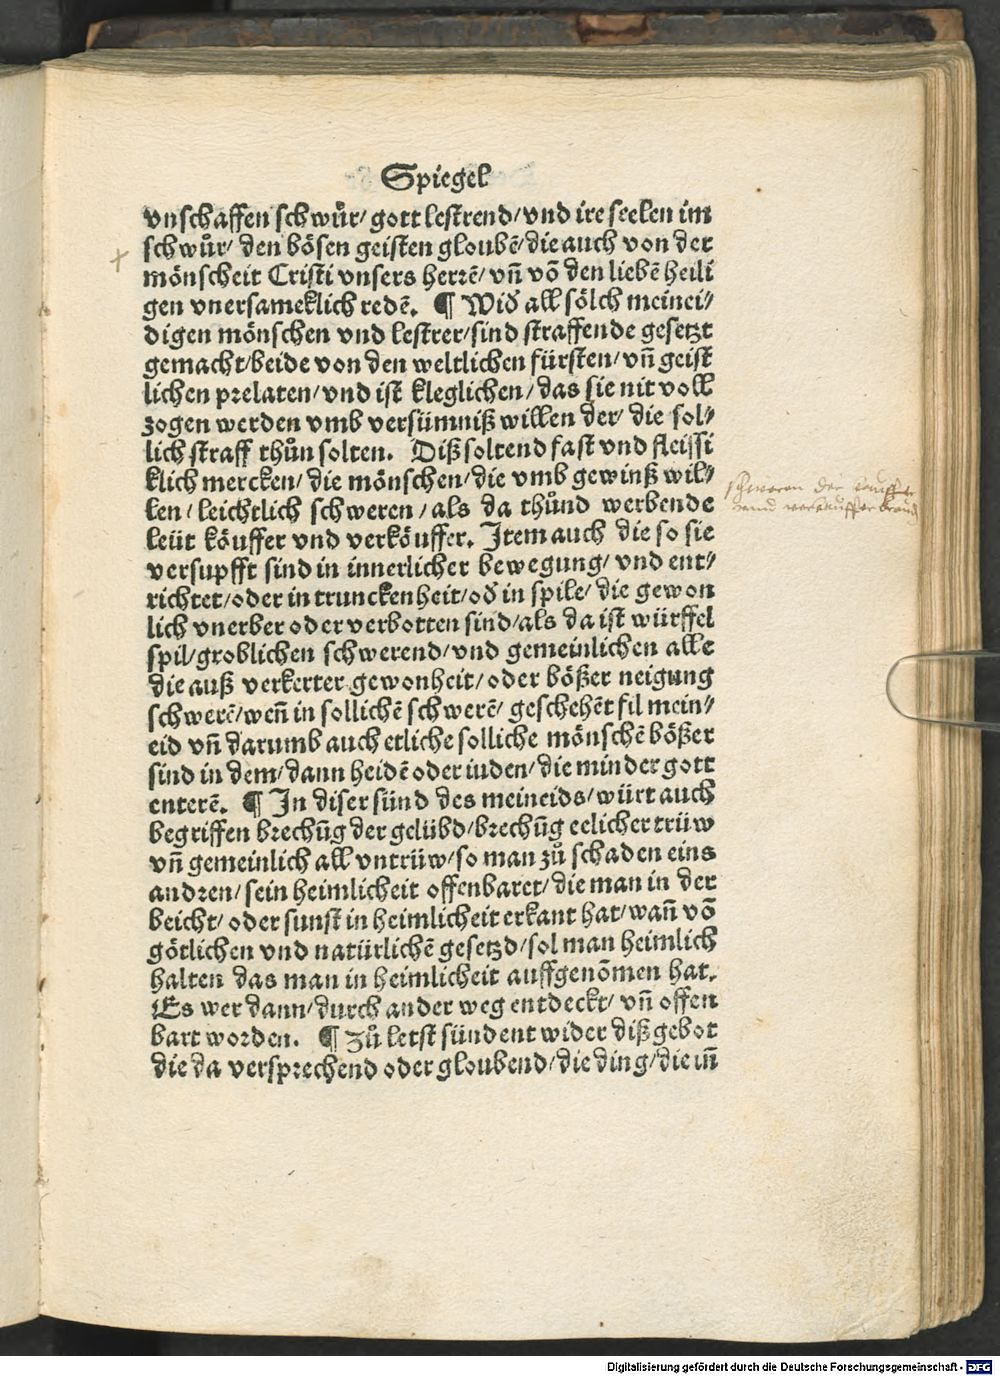 Spiegel
vnschaffen schwuͤr/ gott lestrend/ vnd ire seelen im
schwuͦr/ den boͤsen geisten gloubē/ die auch von der
moͤnscheit Cristi vnsers herrē/ vn̄ vō den liebē heili
gen vnersameklich redē. ¶ Wid all soͤlch meinei/
digen moͤnschen vnd lestrer/ sind straffende gesetzt
gemacht/ beide von den weltlichen fürsten/ vn̄ geist
lichen prelaten/ vnd ist kleglichen/ das sie nit voll
zogen werden vmb versümniß willen der/ die sol/
lich straff thuͦn solten. Diß soltend fast vnd fleissi
klich mercken/ die moͤnschen/ die vmb gewinß wil/
len/ leichtlich schweren/ als da thuͦnd werbende
leüt koͤuffer vnd verkoͤuffer. Item auch die so sie
versupfft sind in innerlicher bewegung/ vnd ent/
richtet/ oder in trunckenheit/ od in spile/ die gewon
lich vnerber oder verbotten sind/ als da ist würffel
spil/ groblichen schwerend/ vnd gemeinlichen alle
die auß verkerter gewonheit/ oder boͤßer neigung
schwerē/ wen̄ in sollichē schwerē/ geschehēt fil mein/
eid vn̄ darumb auch etliche solliche moͤnschē boͤßer
sind in dem/ dann heidē oder iuden/ die minder gott
enterē. ¶ In diser sünd des meineids/ würt auch
begriffen brechūg der gelübd/ brechūg eelicher trüw
vn̄ gemeinlich all vntrüw/ so man zuͦ schaden eins
andren/ sein heimlicheit offenbaret/ die man in der
beicht/ oder sunst in heimlicheit erkant hat/ wan̄ vō
goͤtlichen vnd natürlichē gesetzd/ sol man heimlich
halten das man in heimlicheit auffgenōmen hat.
Es wer dann/ durch ander weg entdeckt/ vn̄ offen
bart worden. ¶ Zuͦ letst sündent wider diß gebot
die da versprechend oder gloubend/ die ding/ die in̄
schweren der
Digitalisierung gefördert durch die Deutsche Forschungsgemeinschaft - DFG